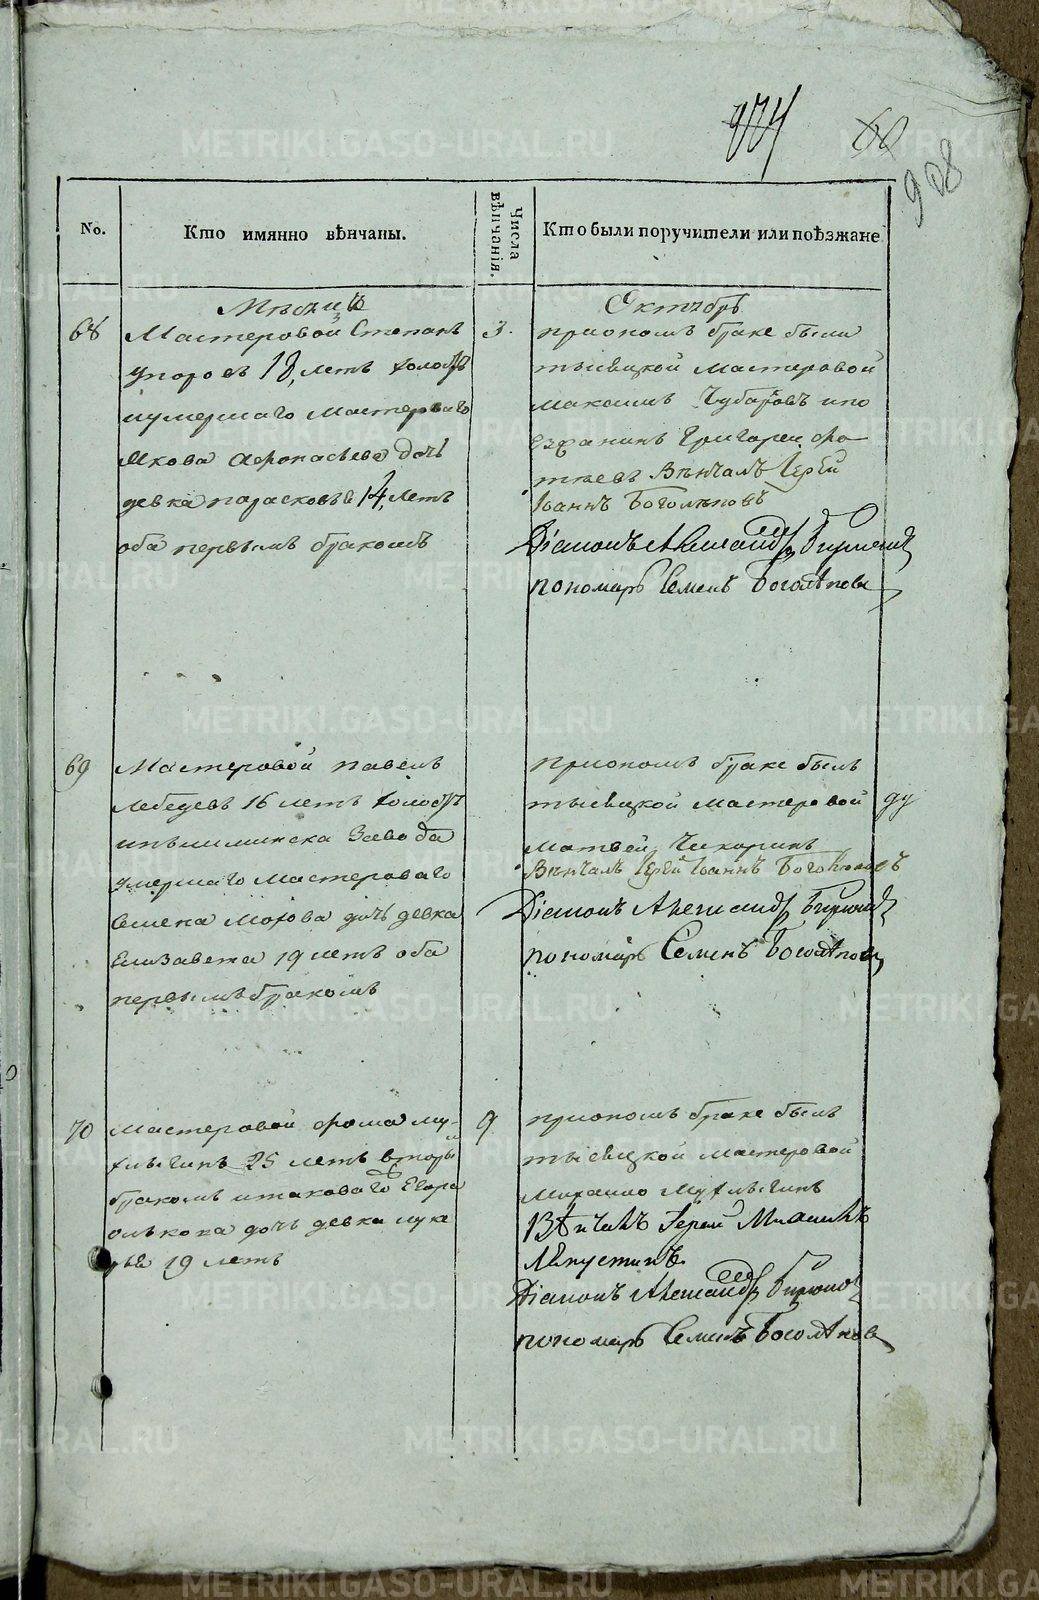 974 60
908
No. Кто имянно вѣнчаны. Числа вѣнчанія. Кто были поручители или поѣзжане
Мѣсецъ Октебрь
68 Мастеровой Степанъ 3.
упоровъ 18, летъ холостъ
иумершаго мастероваго
Якова афонасьева дочь
девка парасковья 14, летъ
оба первымъ бракомъ
приономъ браке были
тысецкой мастеровой
максимъ Чубаровъ ипо
езжанинъ Григорей
Вѣнчалъ Іерей
Іоаннъ Боголѣповъ
Діаконъ Александръ
пономарь Семенъ Боголѣповъ
69 Мастеровой павелъ
лебедевъ 16 летъ холостъ
Завода
умершаго мастероваго
Семена мохова дочь девка
Елизавета 19 летъ оба
первымъ бракомъ
приономъ браке былъ
тысецкой мастеровой
матвей Чикаринъ
Вѣнчалъ Іерей Іоаннъ Боголѣповъ
Діаконъ Александръ
пономарь Семенъ Боголѣповъ
70 мастеровой фома му- 9
хлынинъ 25 летъ вторы
бракомъ итаковаго Егора
дочь девка луке
рья 19 летъ
приономъ браке былъ
тысецкой мастеровой
михаило мухлынинъ
Вѣнчалъ Іерей Михаилъ
Діаконъ Александръ
пономарь Семенъ Боголѣповъ
METRIKI.GASO-URAL.RU